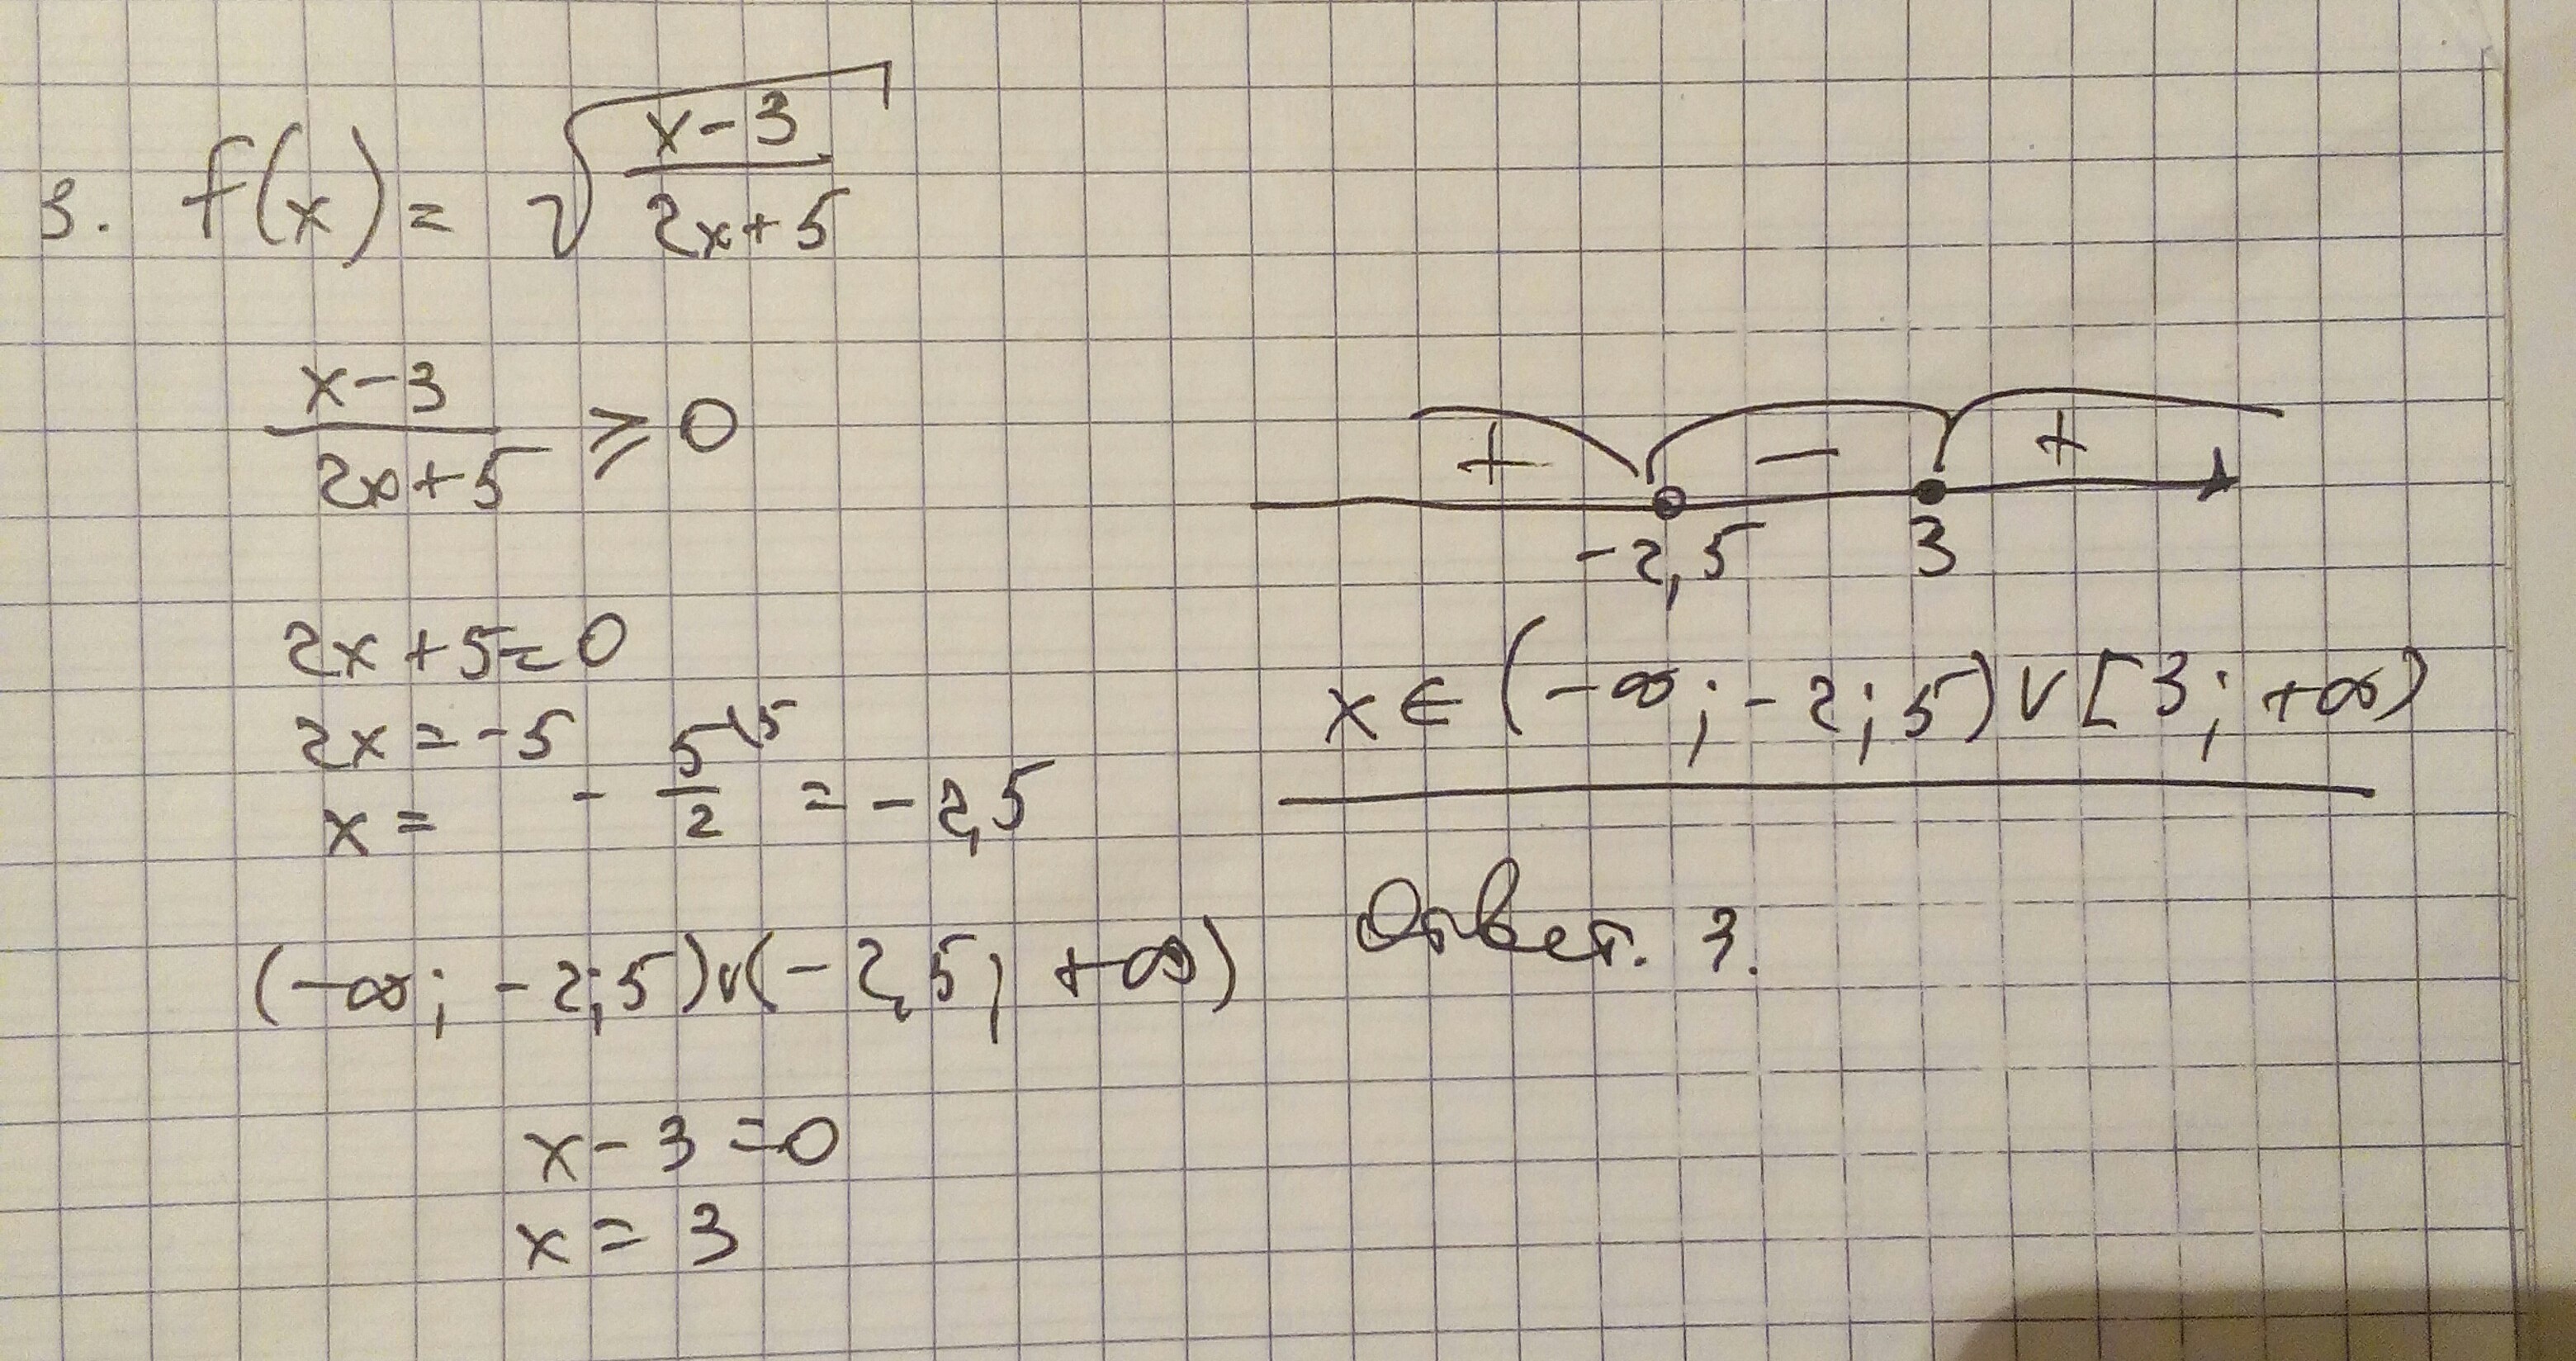 3. f(x) = √((x-3)/(2x+5))
(x-3)/(2x+5) ⩾ 0
2x+5=0
2x=-5
x = -5/2 = -2,5
(-∞; -2;5)∨(-2,5; +∞)
x-3=0
x=3
+ - +
-2,5 3
x∈(-∞; -2;5)∨[3; +∞)
Ответ. 3.